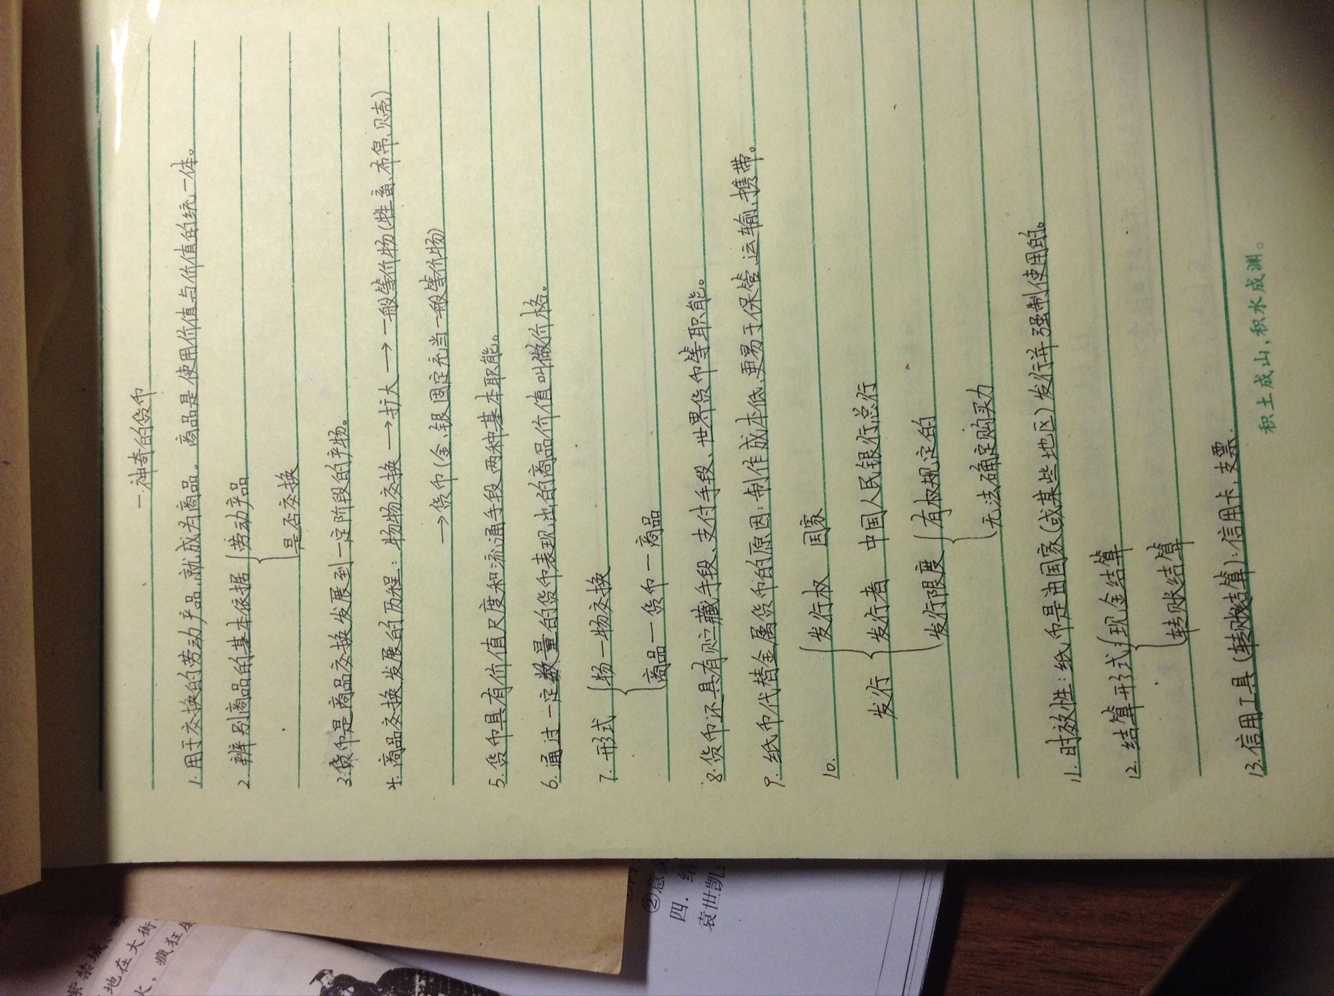 一.神奇的货币
1.用于交换的劳动产品,就成为商品。商品是使用价值与价值的统一体。
2.辨别商品的基本依据{劳动产品
是否交换
3.货币是商品交换发展到一定阶段的产物。
4.商品交换发展的历程:物物交换→扩大→一般等价物(牲畜、布帛、贝壳)
→货币(金、银固定充当一般等价物)
5.货币具有价值尺度和流通手段两种基本职能。
6.通过一定数量的货币表现出的商品价值叫做价格。
7.形式{物—物交换
商品—货币—商品
8.货币还具有贮藏手段、支付手段、世界货币等职能。
9.纸币代替金属货币的原因:制作成本低,更易于保管、运输、携带。
10.
发行{发行权 国家
发行者 中国人民银行总行
发行限度{有权规定的
无法确定购买力
11.时效性:纸币是由国家(或某些地区)发行并强制使用的。
12.结算形式{现金结算
转账结算
13.信用工具(转账结算):信用卡,支票.
积土成山,积水成渊。
紫禁城
地在大街
火,疯狂
②总
四.
袁世凯